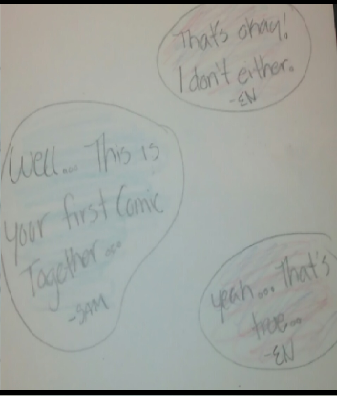 That's okay!
I don't either.
-EN
Well... This is
your first Comic
Together...
-SAM
yeah... That's
true...
-EN